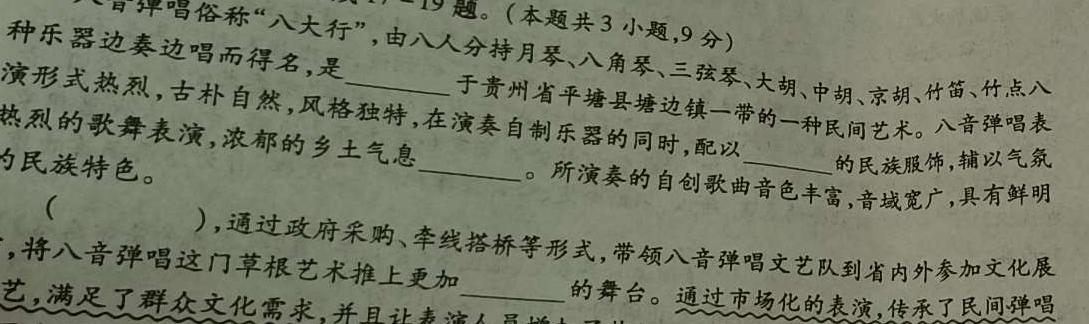 19题。(本题共3小题,9分)
音弹唱俗称“八大行”,由八人分持月琴、八角琴、三弦琴、大胡、中胡、京胡、竹笛、竹点八
种乐器边奏边唱而得名,是______于贵州省平塘县塘边镇一带的一种民间艺术。八音弹唱表
演形式热烈,古朴自然,风格独特,在演奏自制乐器的同时,配以______的民族服饰,辅以气氛
热烈的歌舞表演,浓郁的乡土气息______。所演奏的自创歌曲音色丰富,音域宽广,具有鲜明
的民族特色。
( ),通过政府采购、牵线搭桥等形式,带领八音弹唱文艺队到省内外参加文化展
,将八音弹唱这门草根艺术推上更加______的舞台。通过市场化的表演,传承了民间弹唱
艺,满足了群众文化需求,并且让表演人员增加